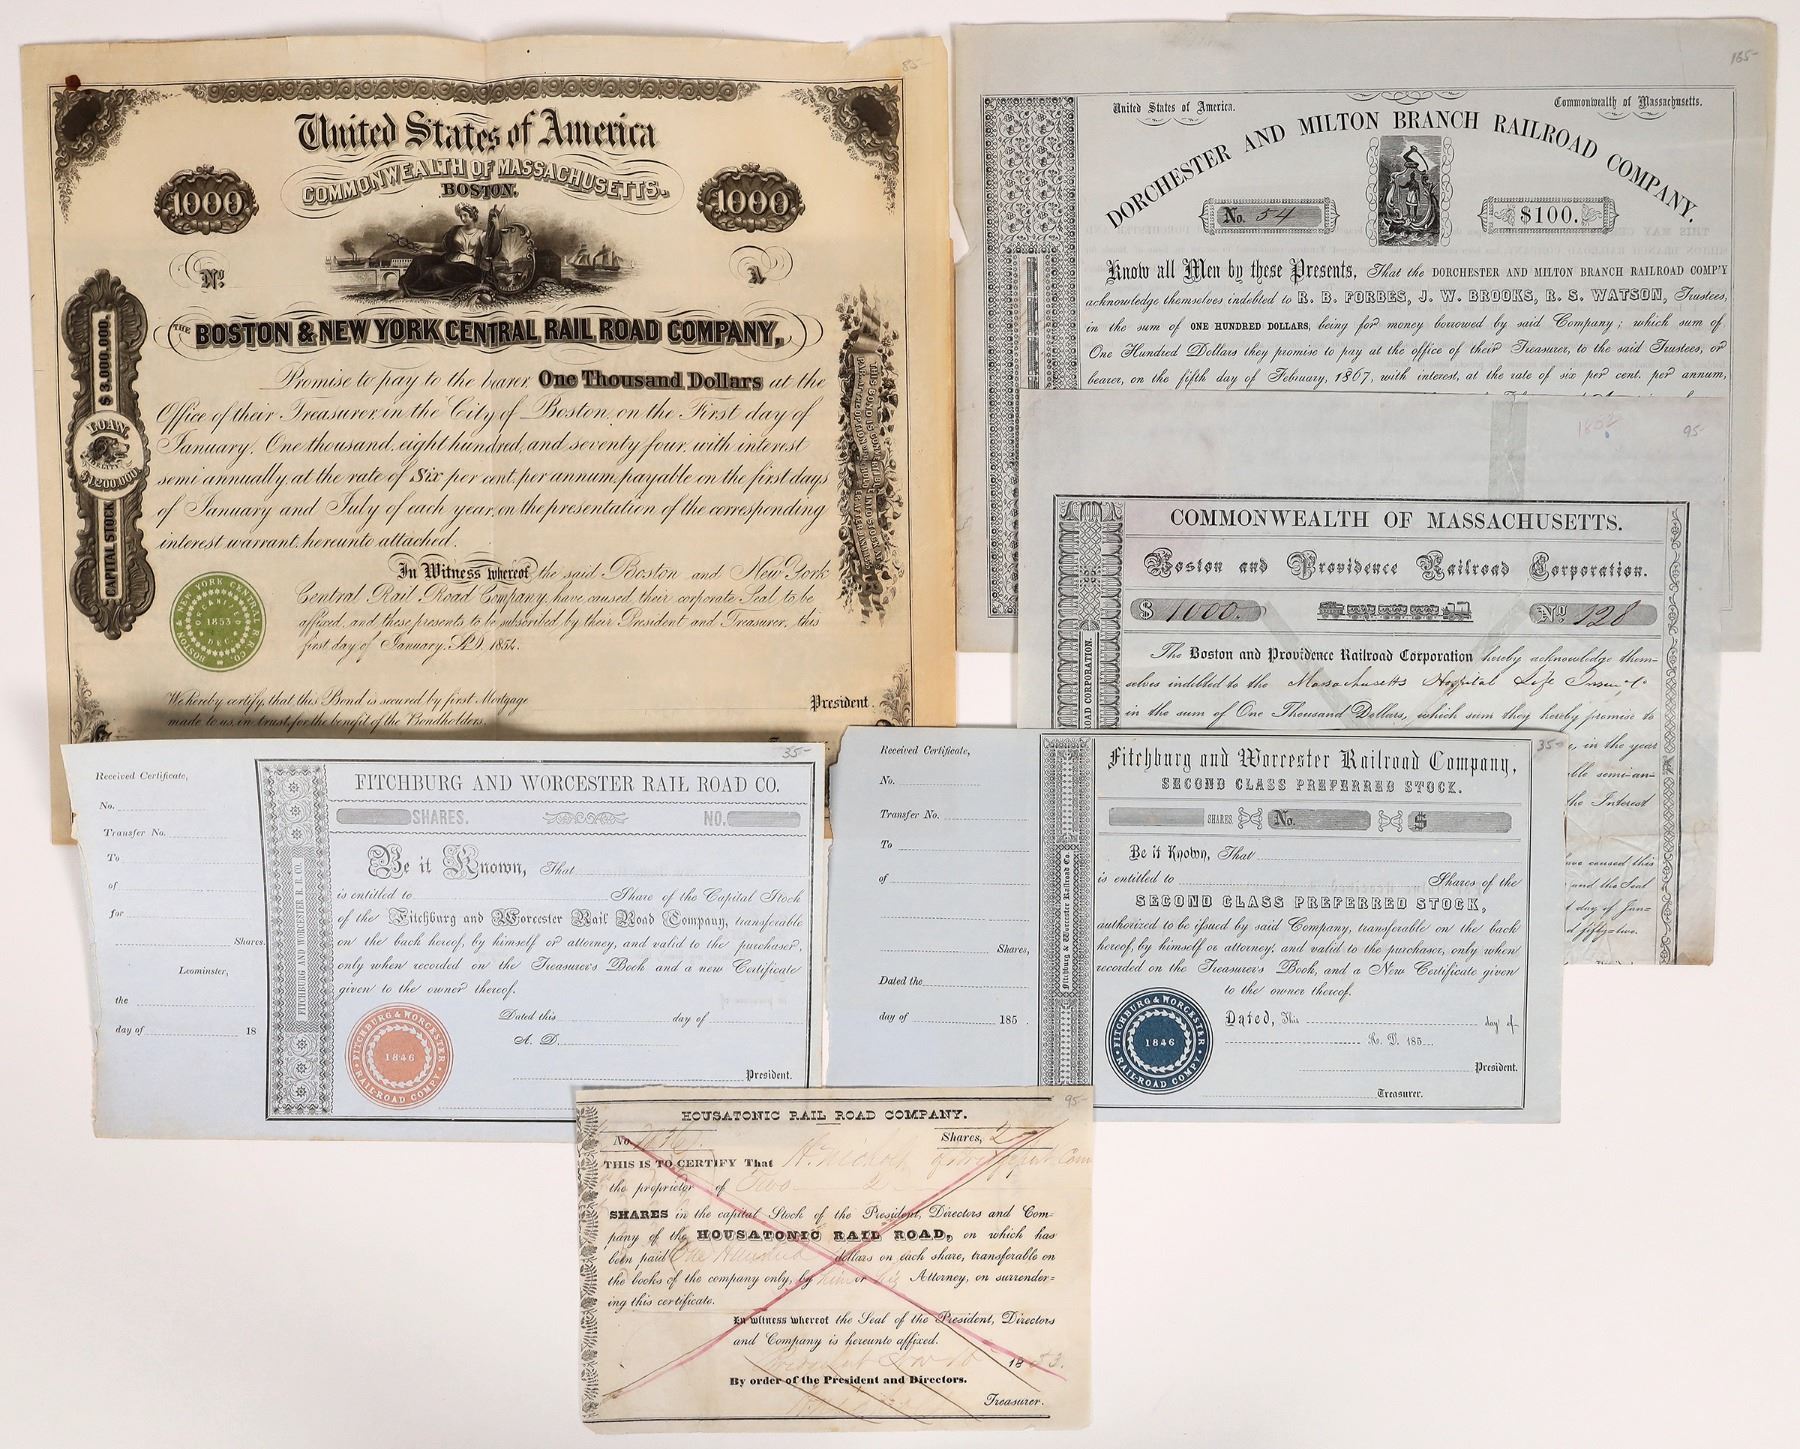 85-
United States of America
COMMONWEALTH OF MASSACHUSETTS.
BOSTON.
1000
1000
No.
A
THE
BOSTON & NEW YORK CENTRAL RAIL ROAD COMPANY,
Promise to pay to the bearer One Thousand Dollars at the
Office of their Treasurer, in the City of Boston, on the First day of
January, One thousand, eight hundred, and seventy four, with interest
semi annually, at the rate of Six per cent, per annum, payable on the first days
of January and July of each year, on the presentation of the corresponding
interest warrant, hereunto attached.
In Witness whereof, the said Boston and New York
Central Rail Road Company, have caused, their corporate Seal, to be
affixed, and these presents to be subscribed by their President and Treasurer, this
first day of January, A.D. 1854.
We hereby certify, that this Bond is secured by first Mortgage
made to us, in trust, for the benefit of the Bondholders.
President.
$ 3,000,000.
LOAN,
FIDELITY
$1,200,000.
CAPITAL STOCK
BOSTON & NEW YORK CENTRAL R.R. CO.
ORGANIZED
1853
DEC.
165-
United States of America.
Commonwealth of Massachusetts.
DORCHESTER AND MILTON BRANCH RAILROAD COMPANY.
No. 54
$100.
Know all Men by these Presents, That the DORCHESTER AND MILTON BRANCH RAILROAD COMP'Y
acknowledge themselves indebted to R. B. FORBES, J. W. BROOKS, R. S. WATSON, Trustees,
in the sum of ONE HUNDRED DOLLARS, being for money borrowed by said Company; which sum of
One Hundred Dollars they promise to pay at the office of their Treasurer, to the said Trustees, or
bearer, on the fifth day of February, 1867, with interest, at the rate of six per cent. per annum,
1852
95-
COMMONWEALTH OF MASSACHUSETTS.
Boston and Providence Railroad Corporation.
$ 1000.
No. 928
The Boston and Providence Railroad Corporation hereby acknowledge them-
selves indebted to the Massachusetts Hospital Life Insur Co
in the sum of One Thousand Dollars, which sum they hereby promise to
, in the year
ble semi-an-
the Interest
ave caused this
and the Seal
t day of Jan-
d fifty-two.
OAD CORPORATION.
35-
Received Certificate,
No.
Transfer No.
To
of
for
Shares.
Leominster,
the
day of 18
FITCHBURG AND WORCESTER R. R. CO.
FITCHBURG AND WORCESTER RAIL ROAD CO.
SHARES. NO.
Be it Known, That
is entitled to Share of the Capital Stock
of the Fitchburg and Worcester Rail Road Company, transferable
on the back hereof, by himself or attorney, and valid to the purchaser,
only when recorded on the Treasurer's Book and a new Certificate
given to the owner thereof.
Dated this day of
A. D.
President.
FITCHBURG & WORCESTER
1846
RAIL-ROAD COMPY.
35-
Received Certificate,
No.
Transfer No.
To
of
Shares,
Dated the
day of 185 .
Fitchburg & Worcester Railroad Co.
Fitchburg and Worcester Railroad Company,
SECOND CLASS PREFERRED STOCK.
SHARES No. $
Be it Known, That
is entitled to Shares of the
SECOND CLASS PREFERRED STOCK,
authorized to be issued by said Company, transferable on the back
hereof, by himself or attorney, and valid to the purchaser, only when
recorded on the Treasurer's Book, and a New Certificate given
to the owner thereof.
Dated, This day of
A. D. 185
President.
Treasurer.
FITCHBURG & WORCESTER
1846
RAIL-ROAD COMPY
95-
HOUSATONIC RAIL ROAD COMPANY.
No
Shares, 2
THIS IS TO CERTIFY That of Bridgeport Conn
the proprietor of Two 2
SHARES in the capital Stock of the President, Directors and Com-
pany of the HOUSATONIC RAIL ROAD, on which has
been paid One Hundred dollars on each share, transferable on
the books of the company only, by him or his Attorney, on surrender-
ing this certificate.
In witness whereof the Seal of the President, Directors
and Company is hereunto affixed.
18
By order of the President and Directors.
Treasurer.